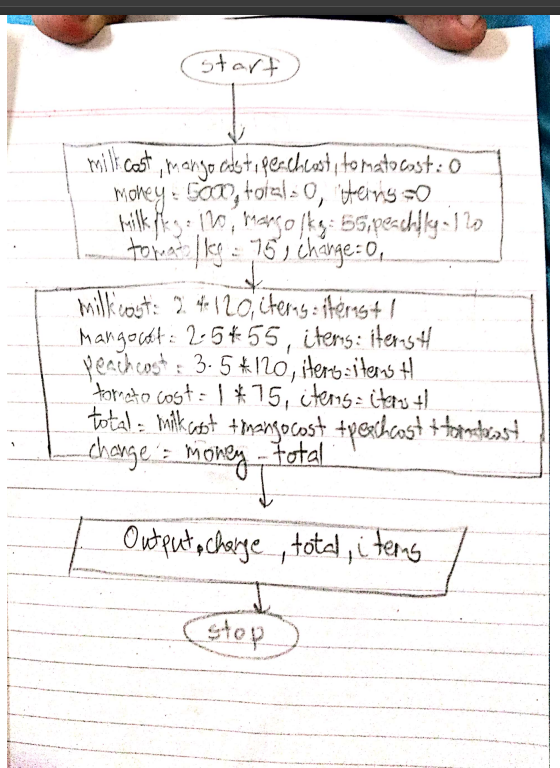 start
milkcost, mangocost, peachcost, tomatocost = 0
money = 5000, total = 0, items = 0
milk/kg = 120, mango/kg = 55, peach/kg = 120
tomato/kg = 75, change = 0,
milkcost = 2 * 120, items = items + 1
mangocost = 2.5 * 55, items = items + 1
peachcost = 3.5 * 120, items = items + 1
tomato cost = 1 * 75, items = items + 1
total = milkcost + mangocost + peachcost + tomatocost
change = money - total
Output, change, total, items
stop